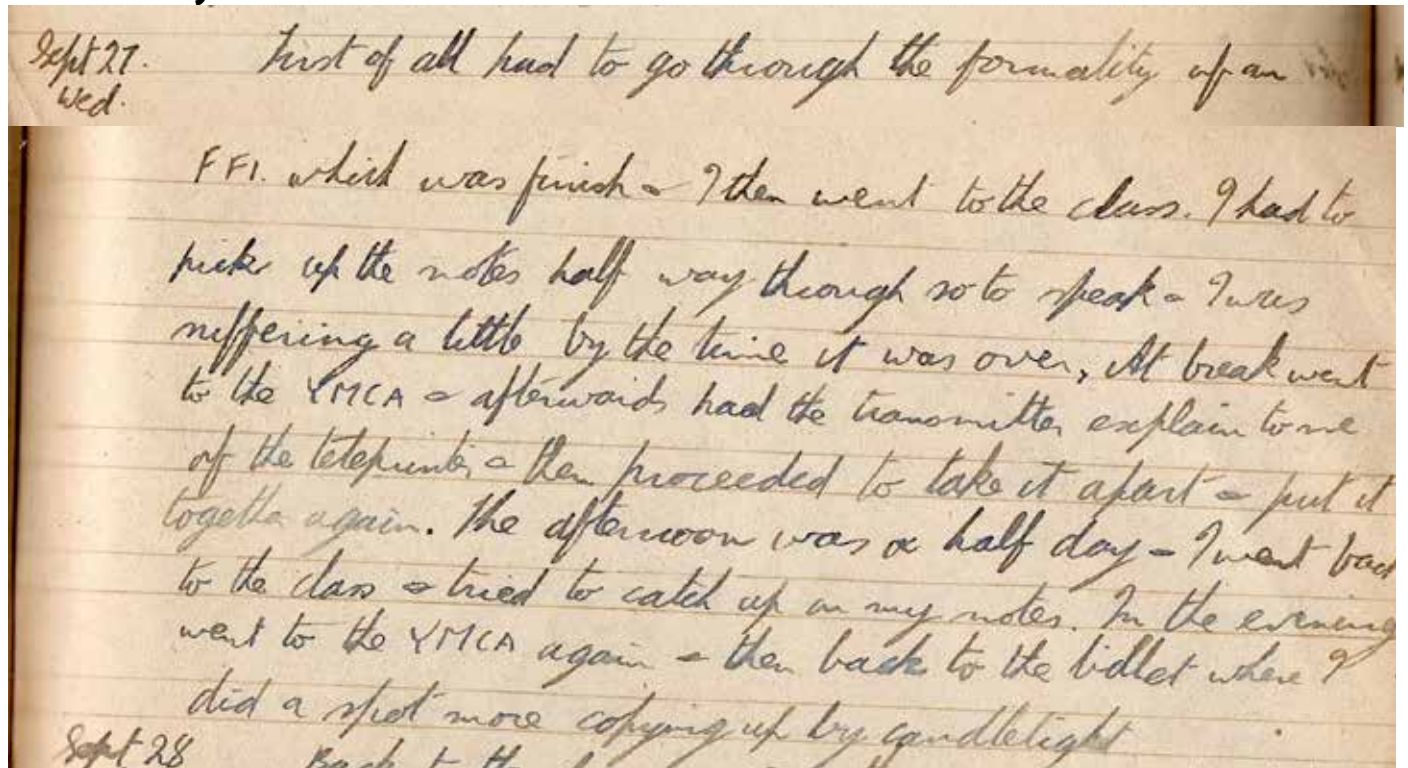 Sept 27. First of all had to go through the formality of an
Wed.
FFI. which was finish - I then went to the class. I had to
pick up the notes half way through so to speak - I was
suffering a little by the time it was over, At break went
to the YMCA - afterwards had the transmitter explain to me
of the teleprinter - then proceeded to take it apart - put it
together again. The afternoon was a half day - I went back
to the class - tried to catch up on my notes. In the evening
went to the YMCA again - then back to the billet where I
did a spot more copying up by candlelight
Sept 28 Back to the